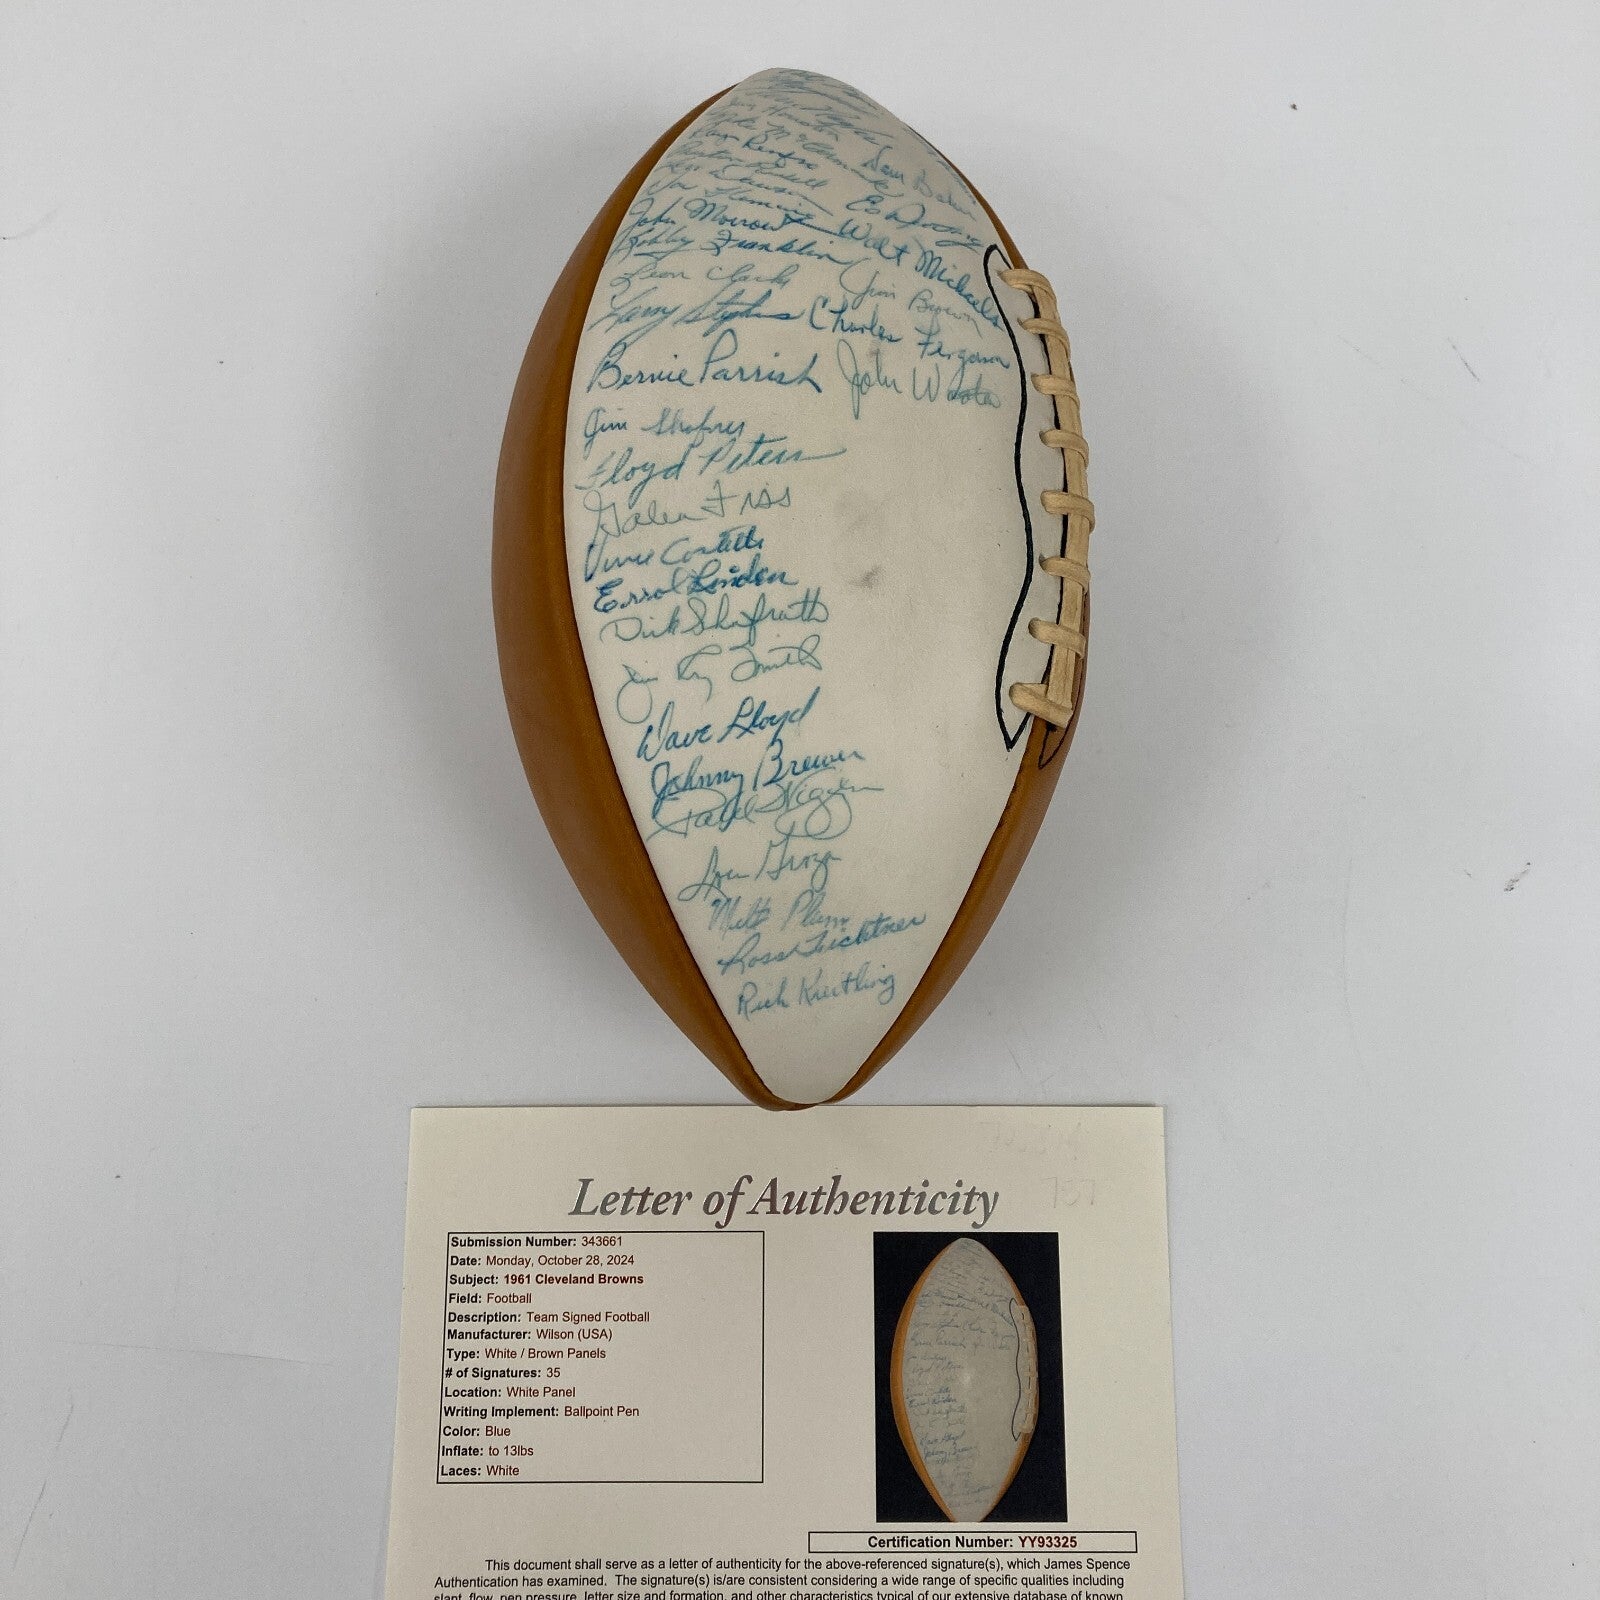 Jim Houston
Mike McCormack
Ray Renfro
Sam Baker
Preston Powell
Len Dawson
Don Fleming
John Morrow
Walt Michaels
Bobby Franklin
Leon Clarke
Jim Brown
Larry Stephens
Charles Ferguson
Bernie Parrish
John Wooten
Jim Shofner
Floyd Peters
Galen Fiss
Vince Costello
Errol Linden
Dick Schafrath
Jim Ray Smith
Dave Lloyd
Johnny Brewer
Paul Wiggin
Lou Groza
Milt Plum
Ross Fichtner
Rich Kreitling
757
Letter of Authenticity
Submission Number: 343661
Date: Monday, October 28, 2024
Subject: 1961 Cleveland Browns
Field: Football
Description: Team Signed Football
Manufacturer: Wilson (USA)
Type: White / Brown Panels
# of Signatures: 35
Location: White Panel
Writing Implement: Ballpoint Pen
Color: Blue
Inflate: to 13lbs
Laces: White
Certification Number: YY93325
This document shall serve as a letter of authenticity for the above-referenced signature(s), which James Spence
Authentication has examined. The signature(s) is/are consistent considering a wide range of specific qualities including
slant, flow, pen pressure, letter size and formation, and other characteristics typical of our extensive database of known